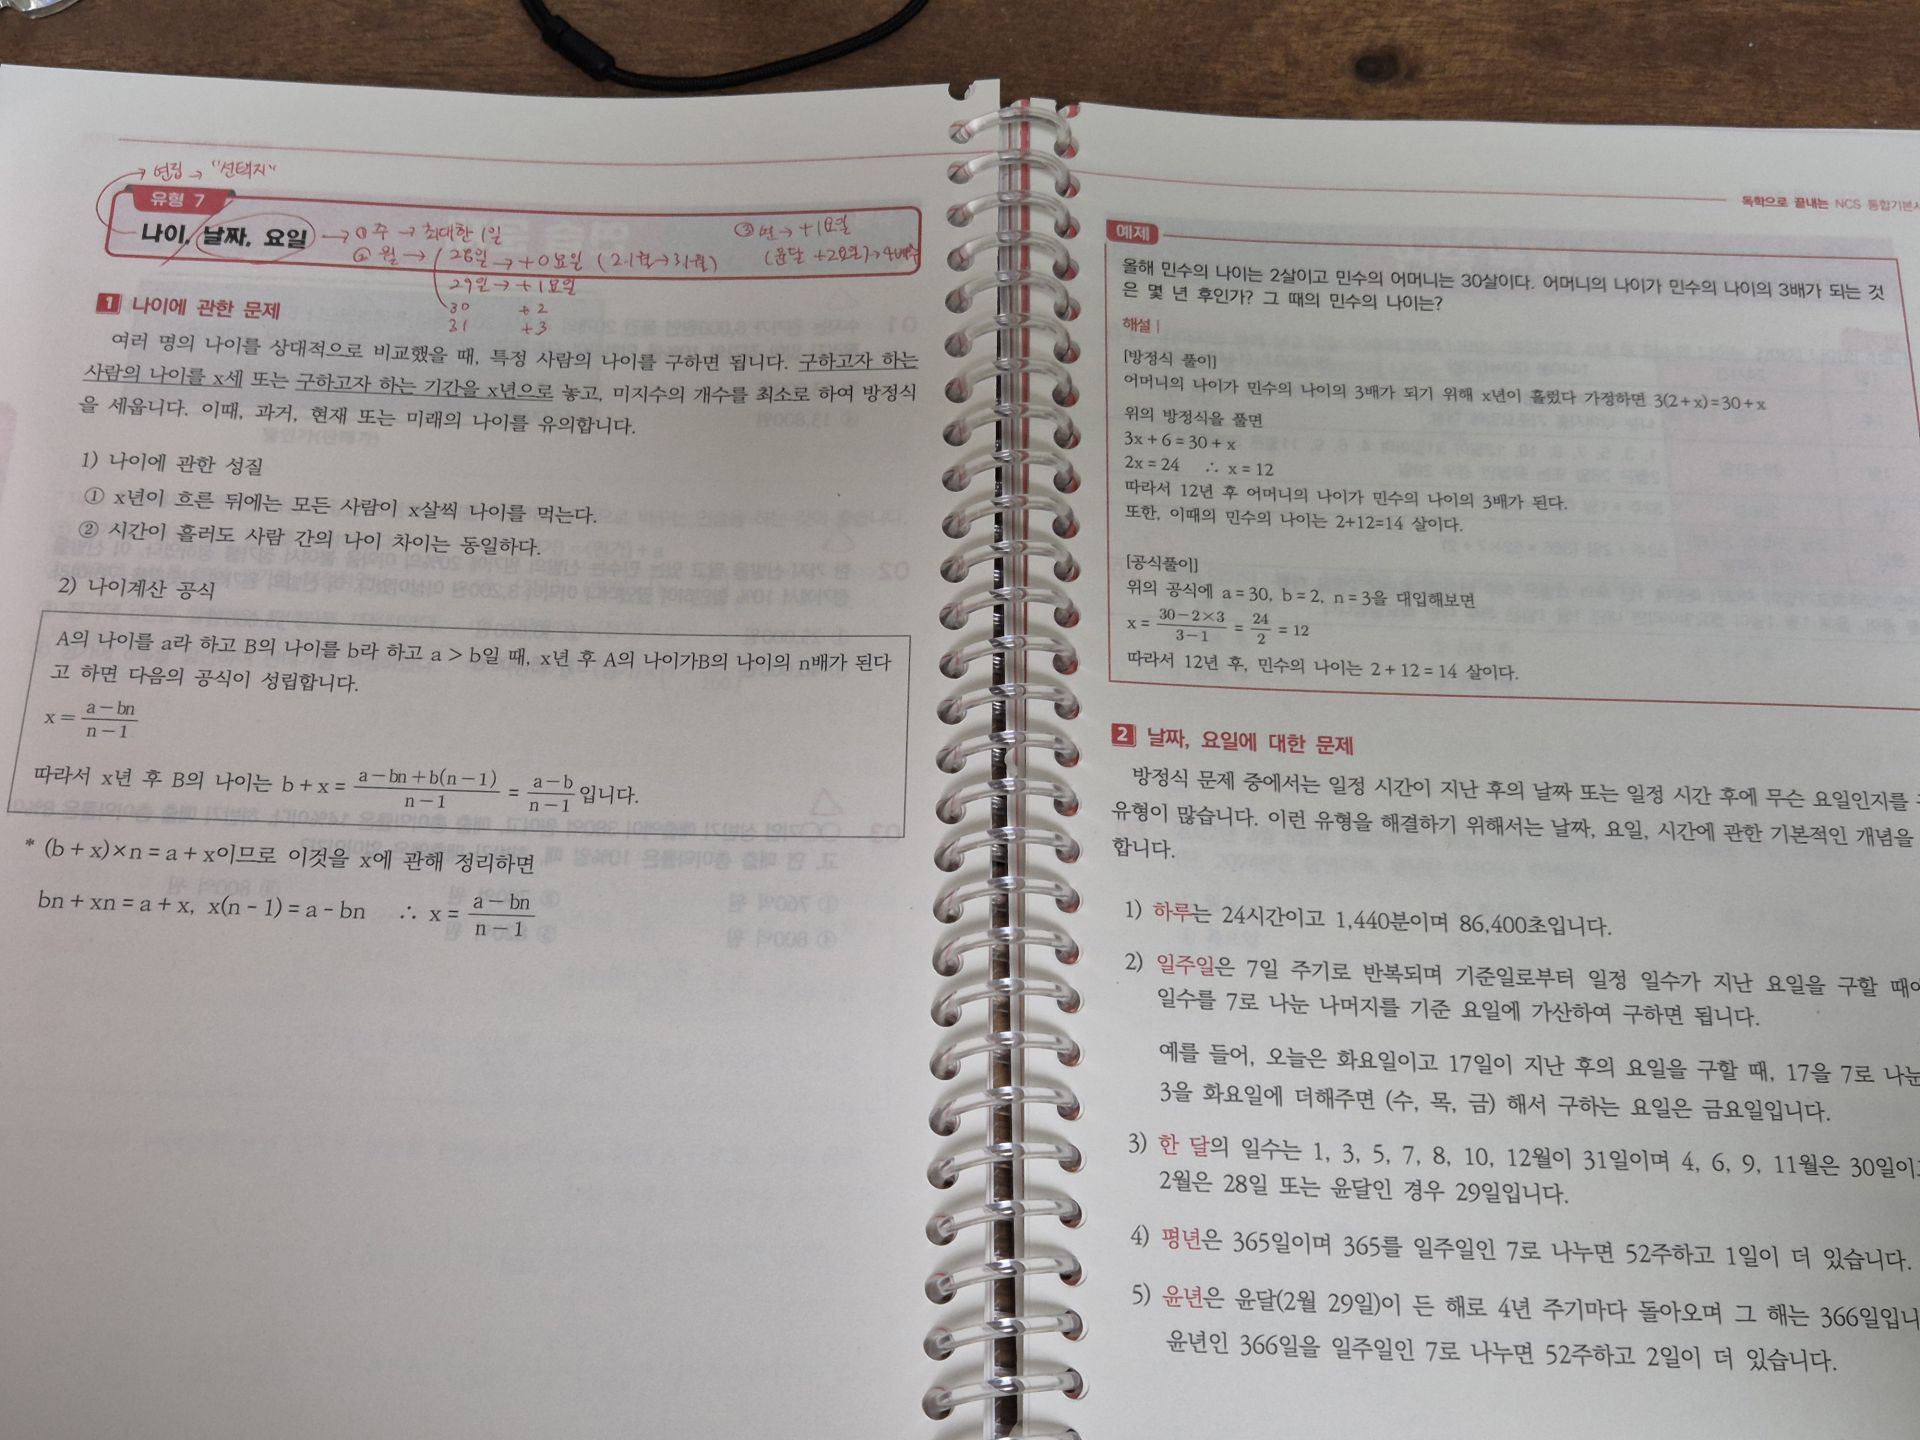 → 연립 → "선택지"
유형 7
나이, 날짜, 요일 → ① 주 → 최대한 1일
② 월 → 28일 → +0요일 (2/1월→3/1월)
29일 → +1요일
30 +2
31 +3
③ 년 → +1요일
(윤달 +2요일)→4배수
1 나이에 관한 문제
여러 명의 나이를 상대적으로 비교했을 때, 특정 사람의 나이를 구하면 됩니다. 구하고자 하는
사람의 나이를 x세 또는 구하고자 하는 기간을 x년으로 놓고, 미지수의 개수를 최소로 하여 방정식
을 세웁니다. 이때, 과거, 현재 또는 미래의 나이를 유의합니다.
1) 나이에 관한 성질
① x년이 흐른 뒤에는 모든 사람이 x살씩 나이를 먹는다.
② 시간이 흘러도 사람 간의 나이 차이는 동일하다.
2) 나이계산 공식
A의 나이를 a라 하고 B의 나이를 b라 하고 a > b일 때, x년 후 A의 나이가B의 나이의 n배가 된다
고 하면 다음의 공식이 성립합니다.
x = (a-bn)/(n-1)
따라서 x년 후 B의 나이는 b + x = (a-bn+b(n-1))/(n-1) = (a-b)/(n-1) 입니다.
* (b + x)×n = a + x이므로 이것을 x에 관해 정리하면
bn + xn = a + x, x(n - 1) = a - bn ∴ x = (a-bn)/(n-1)
독학으로 끝내는 NCS 통합기본서
예제
올해 민수의 나이는 2살이고 민수의 어머니는 30살이다. 어머니의 나이가 민수의 나이의 3배가 되는 것
은 몇 년 후인가? 그 때의 민수의 나이는?
해설 |
[방정식 풀이]
어머니의 나이가 민수의 나이의 3배가 되기 위해 x년이 흘렀다 가정하면 3(2+x)=30+x
위의 방정식을 풀면
3x + 6 = 30 + x
2x = 24 ∴ x = 12
따라서 12년 후 어머니의 나이가 민수의 나이의 3배가 된다.
또한, 이때의 민수의 나이는 2+12=14 살이다.
[공식풀이]
위의 공식에 a = 30, b = 2, n = 3을 대입해보면
x = (30-2×3)/(3-1) = 24/2 = 12
따라서 12년 후, 민수의 나이는 2 + 12 = 14 살이다.
2 날짜, 요일에 대한 문제
방정식 문제 중에서는 일정 시간이 지난 후의 날짜 또는 일정 시간 후에 무슨 요일인지를
유형이 많습니다. 이런 유형을 해결하기 위해서는 날짜, 요일, 시간에 관한 기본적인 개념을
합니다.
1) 하루는 24시간이고 1,440분이며 86,400초입니다.
2) 일주일은 7일 주기로 반복되며 기준일로부터 일정 일수가 지난 요일을 구할 때
일수를 7로 나눈 나머지를 기준 요일에 가산하여 구하면 됩니다.
예를 들어, 오늘은 화요일이고 17일이 지난 후의 요일을 구할 때, 17을 7로 나눈
3을 화요일에 더해주면 (수, 목, 금) 해서 구하는 요일은 금요일입니다.
3) 한 달의 일수는 1, 3, 5, 7, 8, 10, 12월이 31일이며 4, 6, 9, 11월은 30일이고
2월은 28일 또는 윤달인 경우 29일입니다.
4) 평년은 365일이며 365를 일주일인 7로 나누면 52주하고 1일이 더 있습니다.
5) 윤년은 윤달(2월 29일)이 든 해로 4년 주기마다 돌아오며 그 해는 366일입니
윤년인 366일을 일주일인 7로 나누면 52주하고 2일이 더 있습니다.